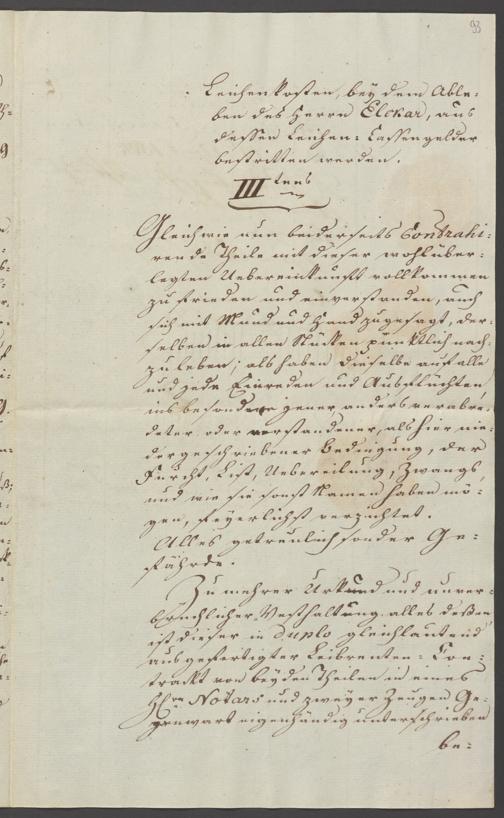 93
Leichenkosten, bey dem Able-
ben des Herrn Elckar, aus
dessen Leichen-Cassengelder
bestritten werden.
III tens
Gleichwie nun beiderseits Contrahi-
rende Theile mit dieser wohlüber-
legten Uebereinkunft vollkommen
zufrieden und einverstanden, auch
sich mit Mund und Hand zugesagt, der-
selben in allen Stücken pünktlich nach-
zuleben; als haben dieselbe auf alle
und jede Einreden und Ausflüchten,
insbesondere jener, anders verabre-
deter oder verstandener, als hier nie-
dergeschriebener Bedingung, der
Furcht, List, Uebereilung, Zwangs,
und wie sie sonst Namen haben mö-
gen, feyerlichst verzichtet.
Alles getreulich sonder Ge-
fährde.
Zu mehrer Urkund und unver-
brüchlicher Vesthaltung alles deßen
ist dieser in Duplo gleichlautend
ausgefertigter Leibrenten-Con-
trackt von beyden Theilen in eines
Hrn Notars und zweyer Zeugen Ge-
genwart eigenhändig unterschrieben
be-